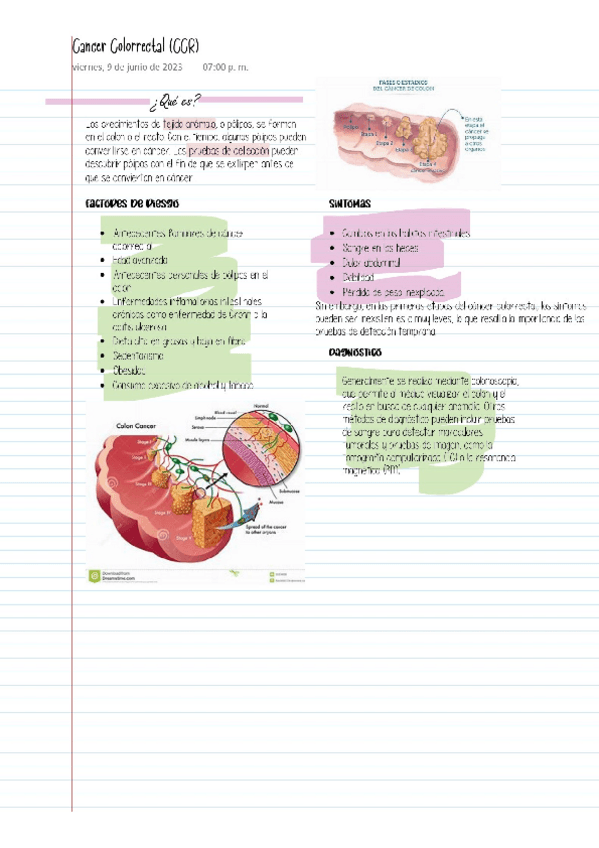 Cancer Colorrectal (CCR)
viernes, 9 de junio de 2023 07:00 p. m.
¿Qué es?
Los crecimientos de tejido anómalo, o pólipos, se forman
en el colon o el recto. Con el tiempo, algunos pólipos pueden
convertirse en cáncer. Las pruebas de detección pueden
descubrir pólipos con el fin de que se extirpen antes de
que se conviertan en cáncer.
FASES O ESTADIOS
DEL CÁNCER DE COLON
Pólipo
Etapa 2
Etapa 4
En esta
etapa el
cáncer se
propaga
a otros
órganos
Factores de riesgo
• Antecedentes familiares de cáncer
colorrectal
• Edad avanzada
• Antecedentes personales de pólipos en el
colon
• Enfermedades inflamatorias intestinales
crónicas como enfermedad de Crohn o la
colitis ulcerosa
• Dieta alta en grasas y baja en fibra
• Sedentarismo
• Obesidad
• Consumo excesivo de alcohol y tabaco
Síntomas
• Cambios en los hábitos intestinales
• Sangre en las heces
• Dolor abdominal
• Debilidad
• Pérdida de peso inexplicada
Sin embargo, en las primeras etapas del cáncer colorrectal, los síntomas
pueden ser inexistentes o muy leves, lo que resalta la importancia de las
pruebas de detección temprana
Diagnóstico
Generalmente se realiza mediante colonoscopia,
que permite al médico visualizar el colon y el
recto en busca de cualquier anomalía. Otros
métodos de diagnóstico pueden incluir pruebas
de sangre para detectar marcadores
tumorales y pruebas de imagen, como la
tomografía computarizada (TC) o la resonancia
magnética (RM)
Colon Cancer
Normal
Blood vessel
Lymph node
Serosa
Muscle layers
Submucosa
Mucosa
Stage I
Stage II
Stage III
Stage IV
Spread of the cancer
to other organs
Download from
Dreamstime.com